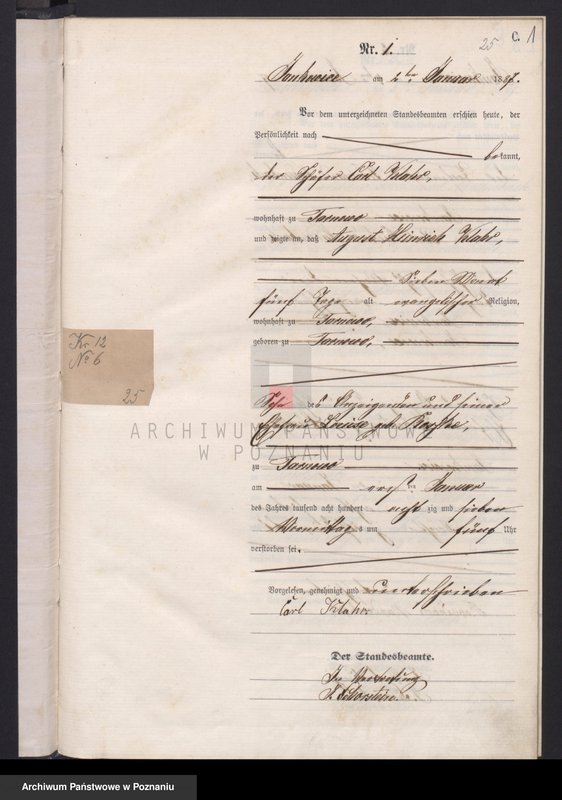 25 C. 1
Nr. 1.
am 2ten Januar 1887.
Vor dem unterzeichneten Standesbeamten erschien heute, der
Persönlichkeit nach
bekannt,
der Schäfer Carl
wohnhaft zu Tarnowo
und zeigte an, daß August Heinrich
Sieben Monat
fünf Tage alt evangelischer Religion,
wohnhaft zu Tarnowo,
geboren zu Tarnowo,
Kr. 12
No 6
25
Sohn des Anzeigenden und seiner
Ehefrau Louise geb.
ARCHIWUM PAŃSTWOWE
W POZNANIU
zu Tarnowo
am ersten Januar
des Jahres tausend acht hundert acht zig und sieben
Vormittags um fünf Uhr
verstorben sei.
Vorgelesen, genehmigt und unterschrieben
Carl
Der Standesbeamte.
In Vertretung
Archiwum Państwowe w Poznaniu